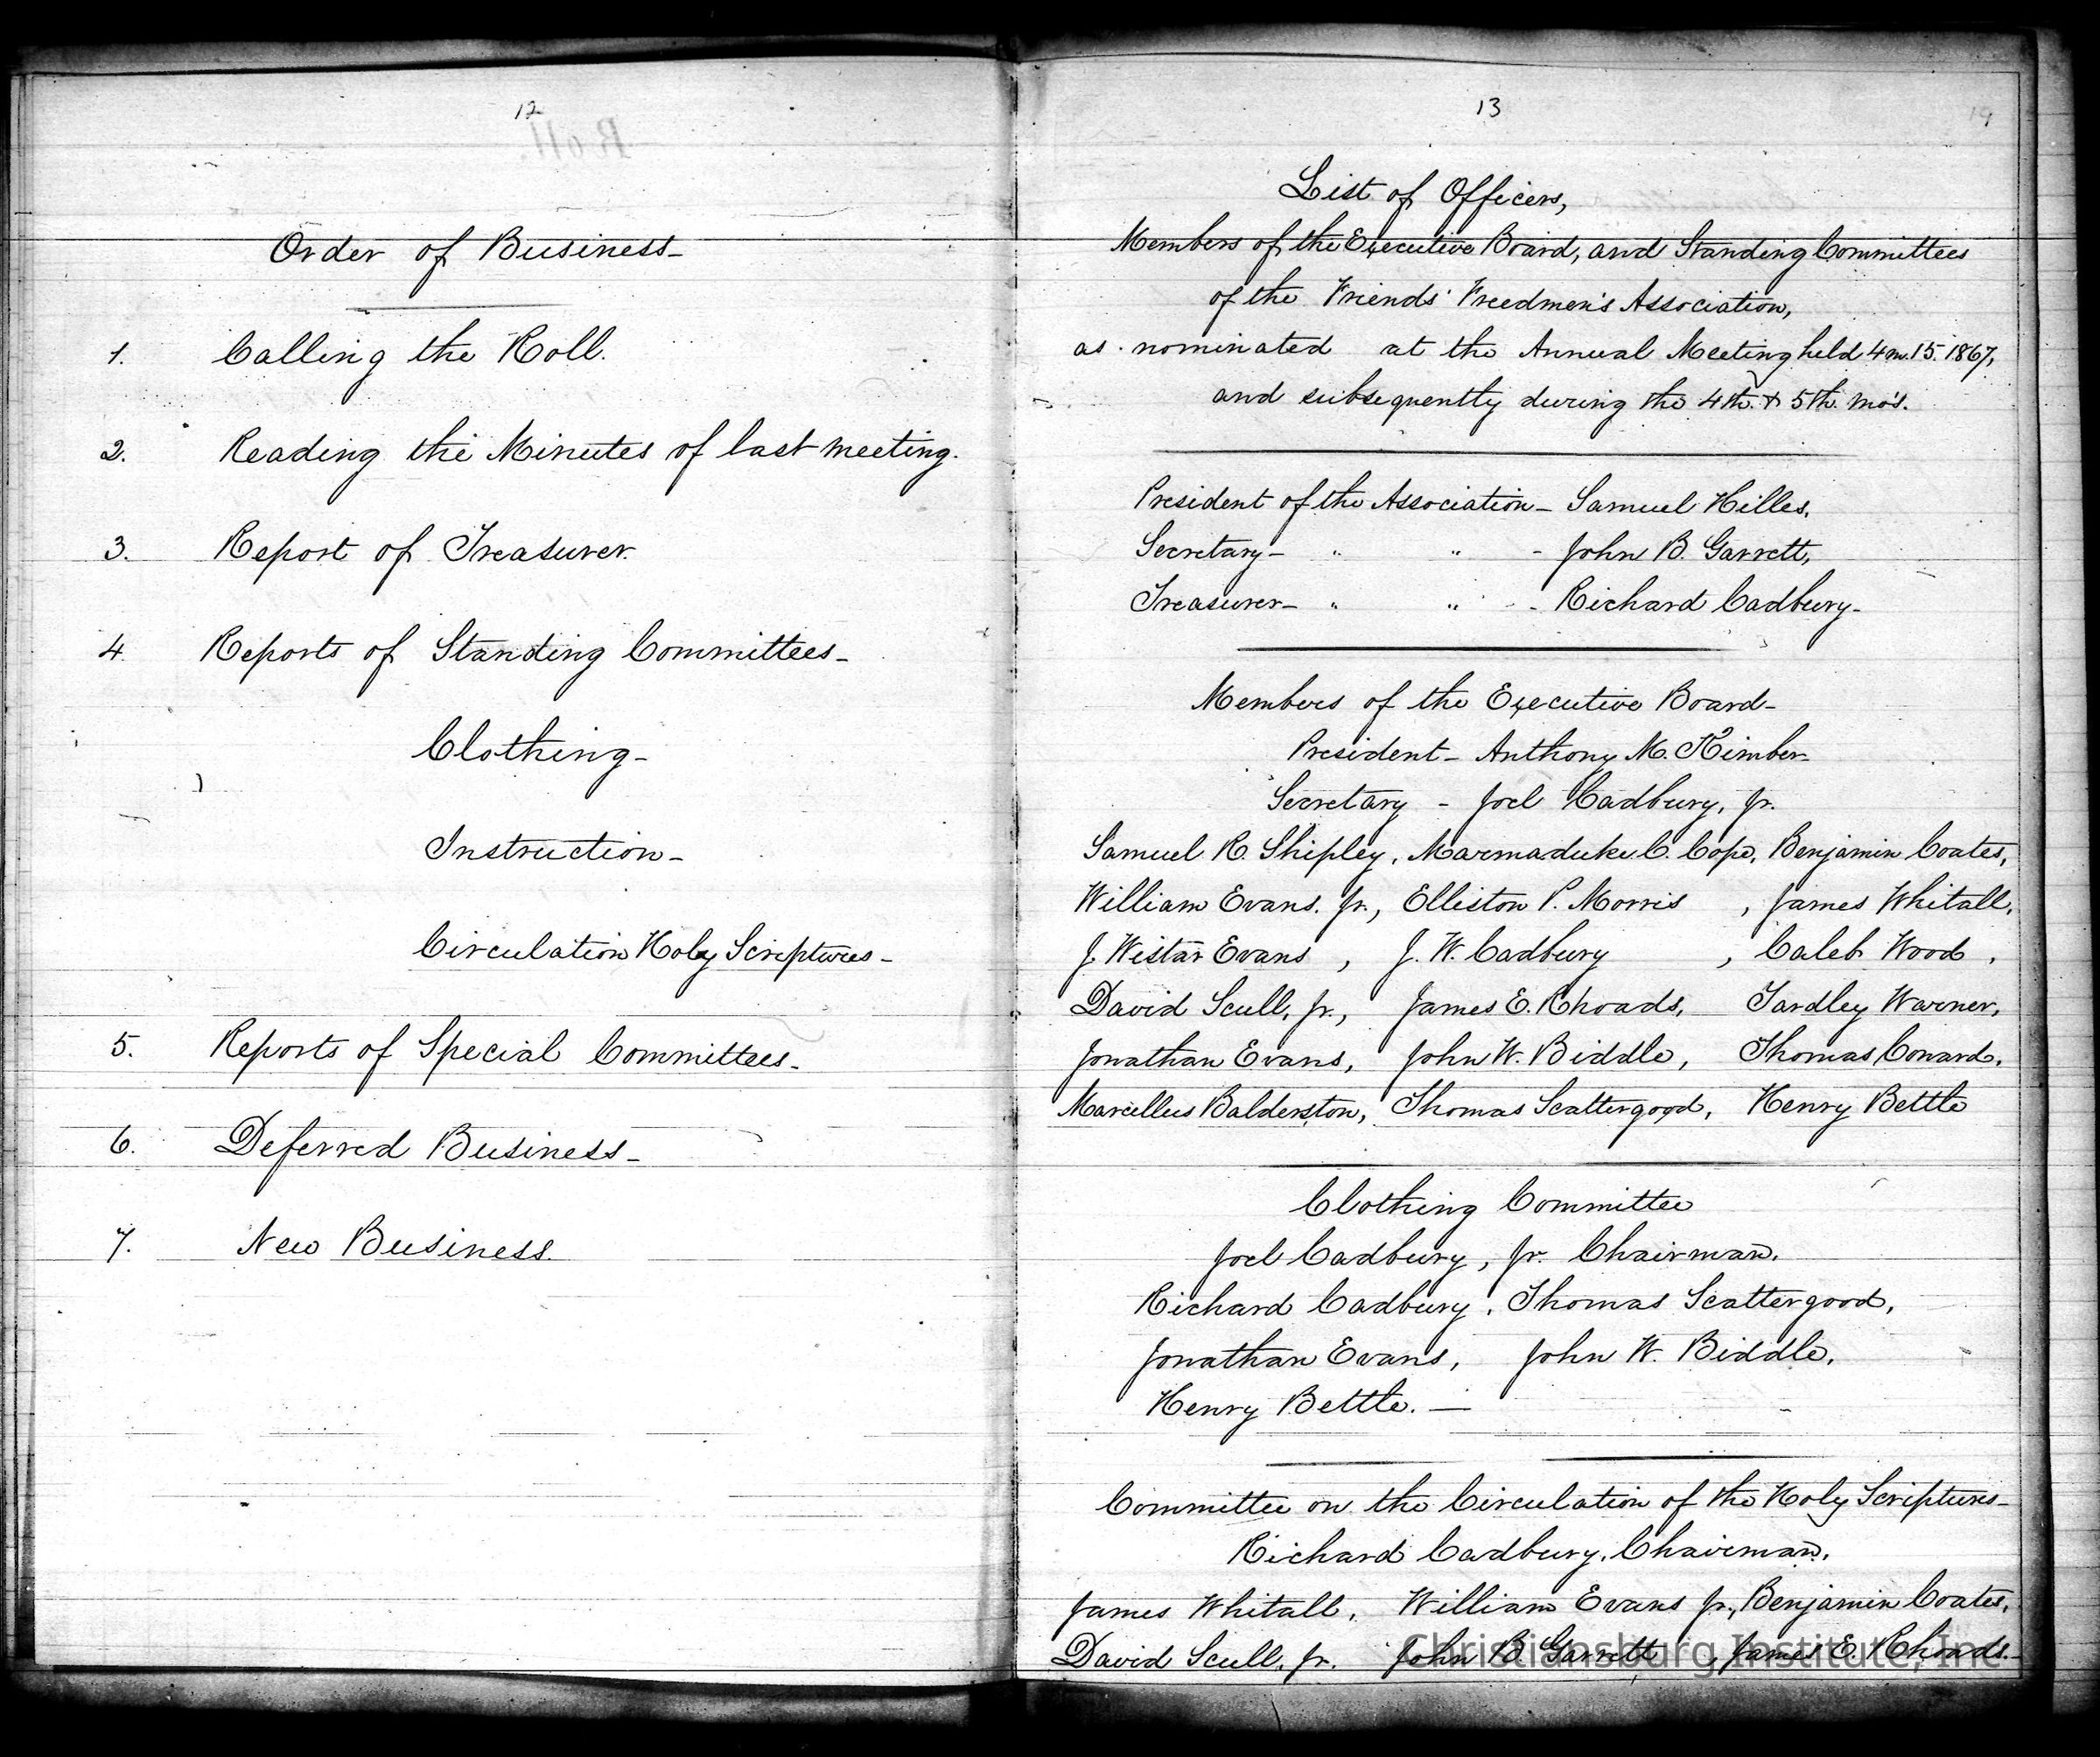 12
Order of Business-
1. Calling the Roll.
2. Reading the Minutes of last meeting.
3. Report of Treasurer.
4. Reports of Standing Committees-
Clothing-
Instruction-
Circulation Holy Scriptures-
5. Reports of Special Committees-
6. Deferred Business-
7. New Business.
13
List of Officers,
Members of the Executive Board, and Standing Committees
of the Friends' Freedmen's Association,
as nominated at the Annual Meeting held 4 m. 15. 1867,
and subsequently during the 4th. & 5th. mo's.
President of the Association- Samuel Hilles.
Secretary- " " - John B. Garrett,
Treasurer- " " - Richard Cadbury-
Members of the Executive Board-
President- Anthony M. Kimber-
Secretary - Joel Cadbury, Jr.
Samuel R. Shipley, Marmaduke C. Cope, Benjamin Coates,
William Evans. Jr., Elliston P. Morris, James Whitall,
J. Wistar Evans, J. W. Cadbury, Caleb Wood,
David Scull, Jr., James E. Rhoads, Yardley Warner,
Jonathan Evans, John W. Biddle, Thomas Conard,
Marcellus Balderston, Thomas Scattergood, Henry Bettle
Clothing Committee
Joel Cadbury, Jr. Chairman.
Richard Cadbury, Thomas Scattergood,
Jonathan Evans, John W. Biddle,
Henry Bettle. —
Committee on the Circulation of the Holy Scriptures-
Richard Cadbury, Chairman.
James Whitall, William Evans Jr., Benjamin Coates,
David Scull, Jr. John B. Garrett, James E. Rhoads.-
Christiansburg Institute, Inc